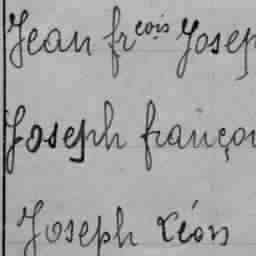 Jean frçois Josep
Joseph françoi
Joseph Léon